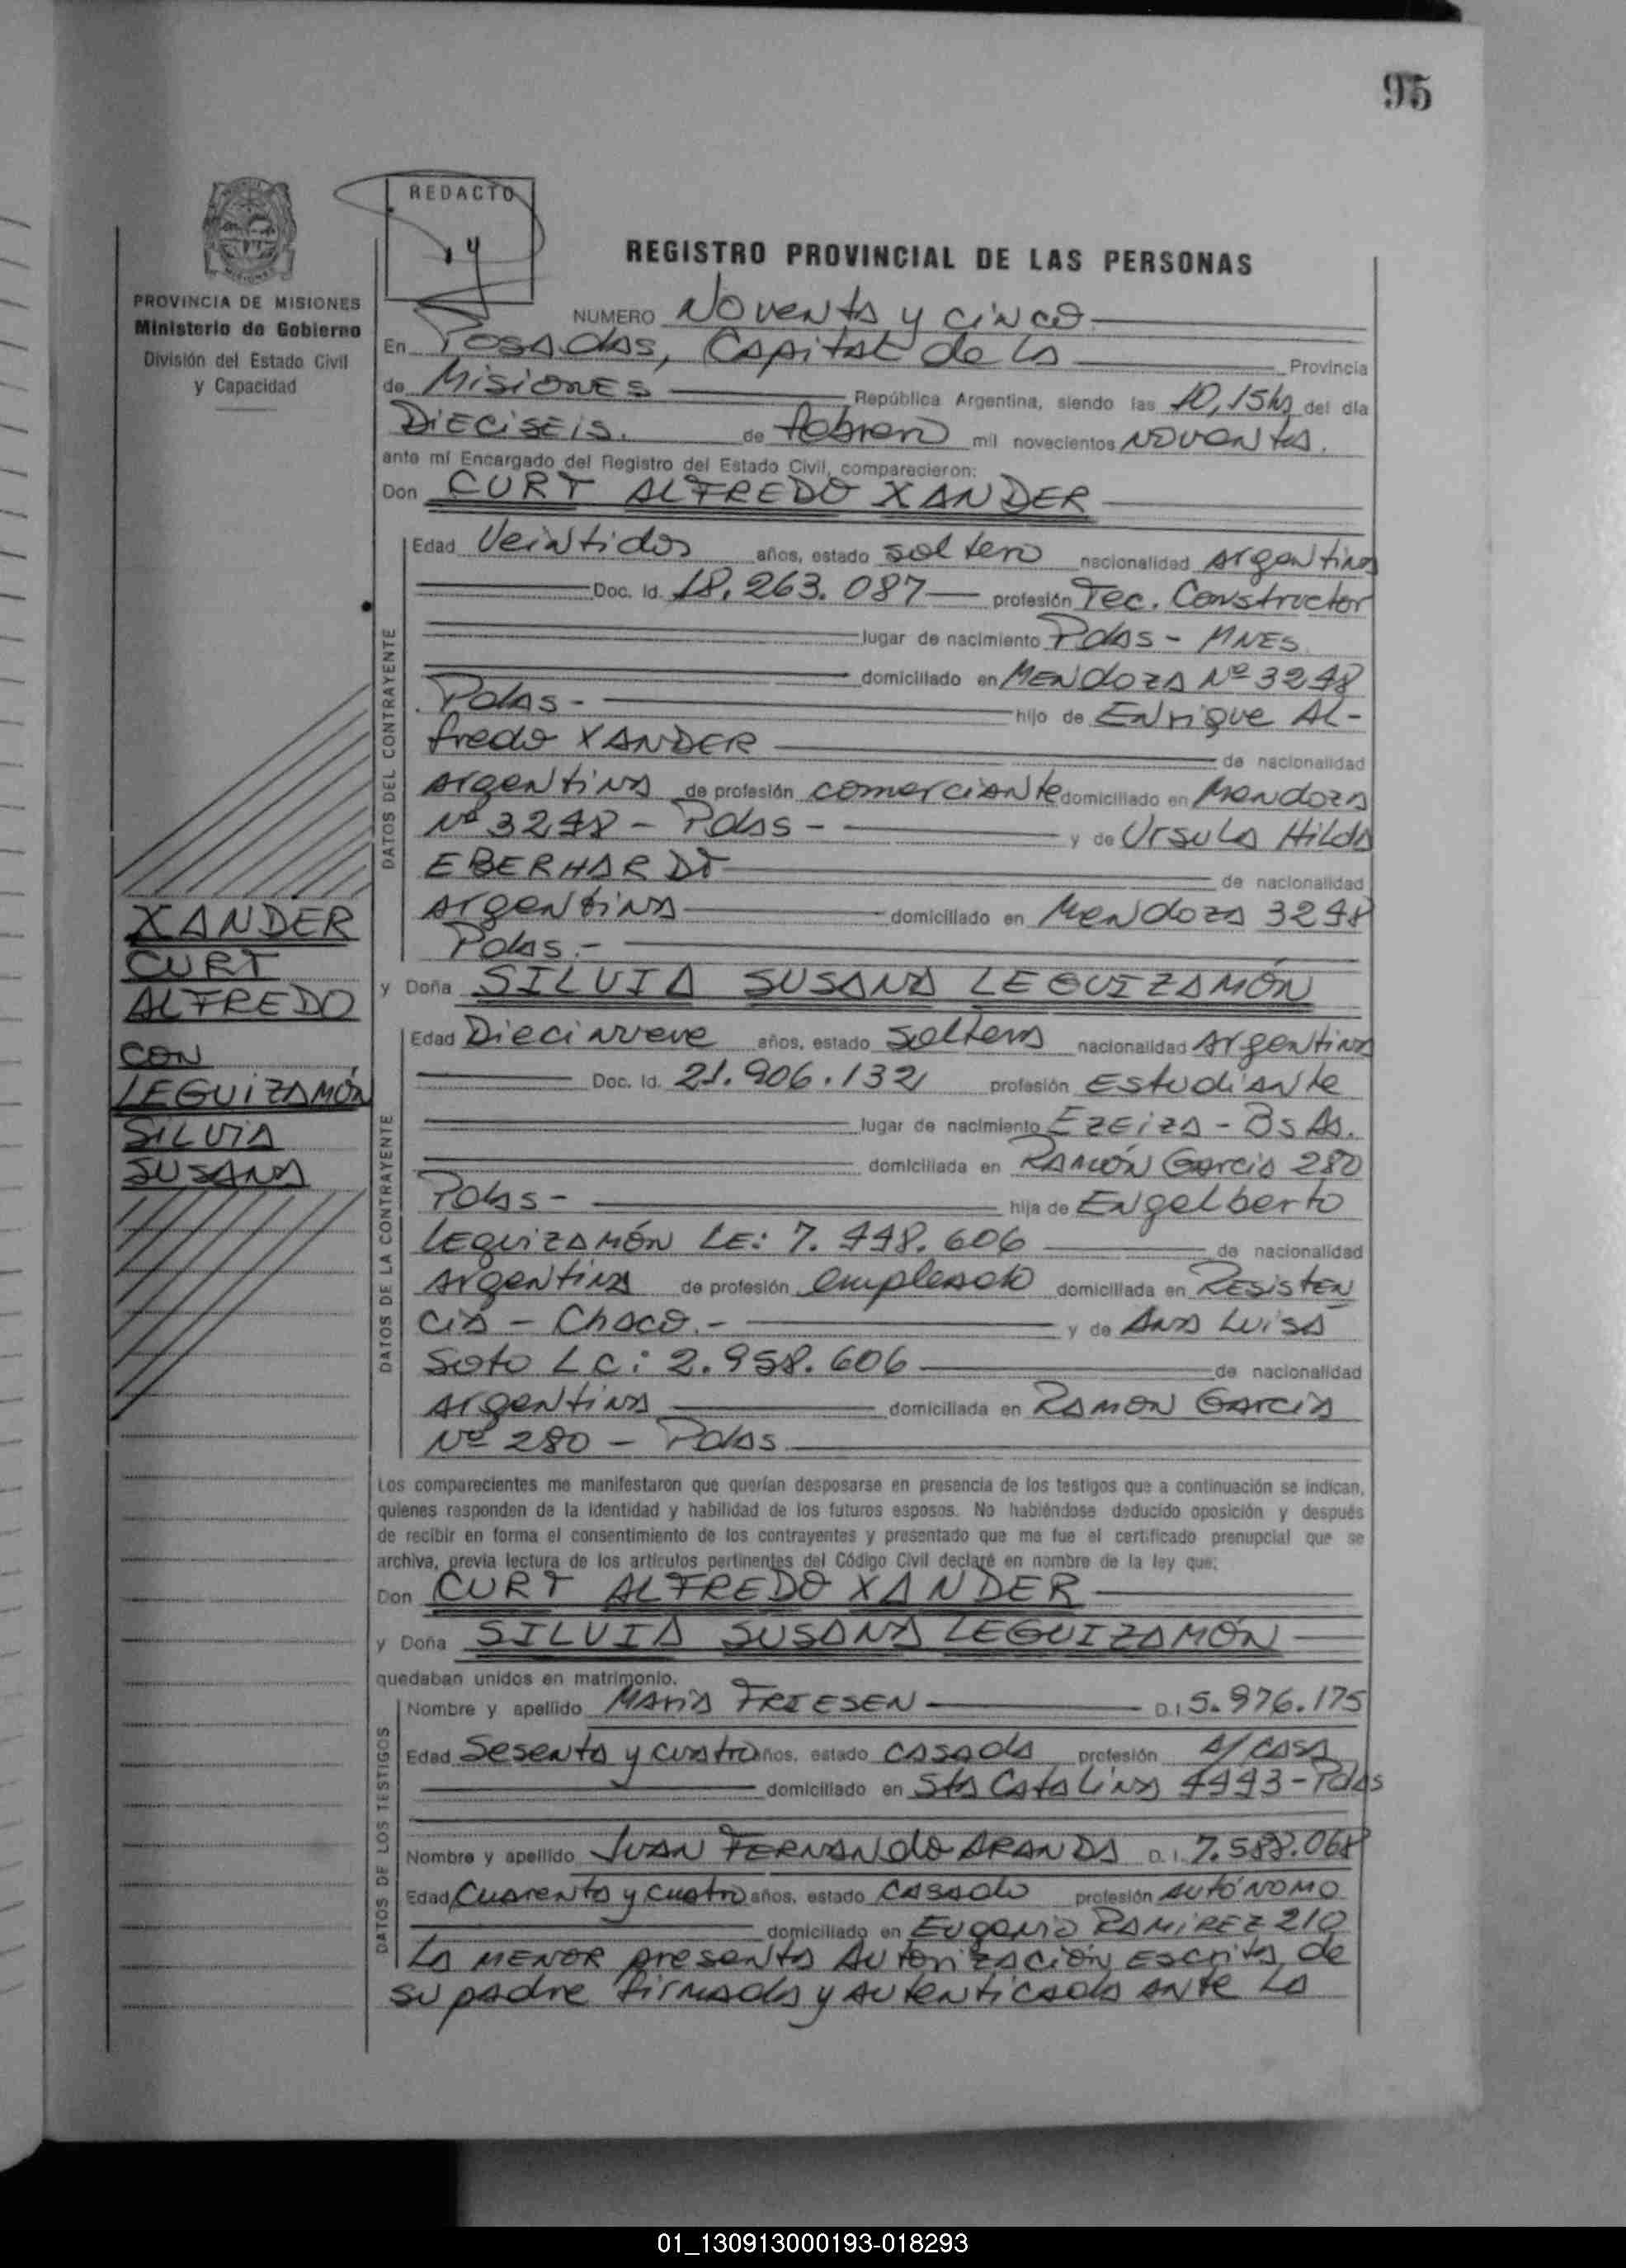 95
REDACTO
REGISTRO PROVINCIAL DE LAS PERSONAS
PROVINCIA DE MISIONES
Ministerio de Gobierno
División del Estado Civil
y Capacidad
NUMERO Noventa y cinco
En Posadas, Capital de la Provincia
de Misiones República Argentina, siendo las 10,15hs del día
Dieciseis. de febrero mil novecientos noventa.
ante mí Encargado del Registro del Estado Civil, comparecieron:
Don CURT ALFREDO XANDER
DATOS DEL CONTRAYENTE
Edad Veintidos años, estado soltero nacionalidad Argentina
Doc. Id. 18.263.087 profesión Tec. Constructor
lugar de nacimiento Pdas - Mnes.
domiciliado en Mendoza Nº 3248
Pdas - hijo de Enrique Al-
fredo XANDER de nacionalidad
Argentina de profesión comerciante domiciliado en Mendoza
Nº 3248 - Pdas - y de Ursula Hilda
EBERHARDT de nacionalidad
Argentina domiciliado en Mendoza 3248
Pdas.-
y Doña SILVIA SUSANA LEGUIZAMÓN
XANDER
CURT
ALFREDO
CON
LEGUIZAMÓN
SILVIA
SUSANA
DATOS DE LA CONTRAYENTE
Edad Diecinueve años, estado soltera nacionalidad Argentina
Doc. Id. 21.906.132 profesión Estudiante
lugar de nacimiento Ezeiza - Bs As.
domiciliada en Ramón Garcia 280
Pdas - hija de Engelberto
Leguizamón LE: 7.448.606 de nacionalidad
Argentina de profesión empleado domiciliada en Resisten
cia - Chaco.- y de Ana Luisa
Soto L.C: 2.958.606 de nacionalidad
Argentina domiciliada en Ramon Garcia
Nº 280 - Pdas.
Los comparecientes me manifestaron que querían desposarse en presencia de los testigos que a continuación se indican,
quienes responden de la identidad y habilidad de los futuros esposos. No habiéndose deducido oposición y después
de recibir en forma el consentimiento de los contrayentes y presentado que me fue el certificado prenupcial que se
archiva, previa lectura de los artículos pertinentes del Código Civil declaré en nombre de la ley que:
Don CURT ALFREDO XANDER
y Doña SILVIA SUSANA LEGUIZAMÓN
quedaban unidos en matrimonio.
DATOS DE LOS TESTIGOS
Nombre y apellido Maria FRIESEN D.I. 5.976.175
Edad Sesenta y cuatro años, estado casada profesión A/casa
domiciliado en Sta Catalina 4493 - Pdas
Nombre y apellido Juan Fernando ARANDA D.I. 7.588.068
Edad Cuarenta y cuatro años, estado casado profesión Autónomo
domiciliado en Eugenio Ramirez 210
La menor presenta Autorización escrita de
su padre firmada y autenticada ante la
01_130913000193-018293